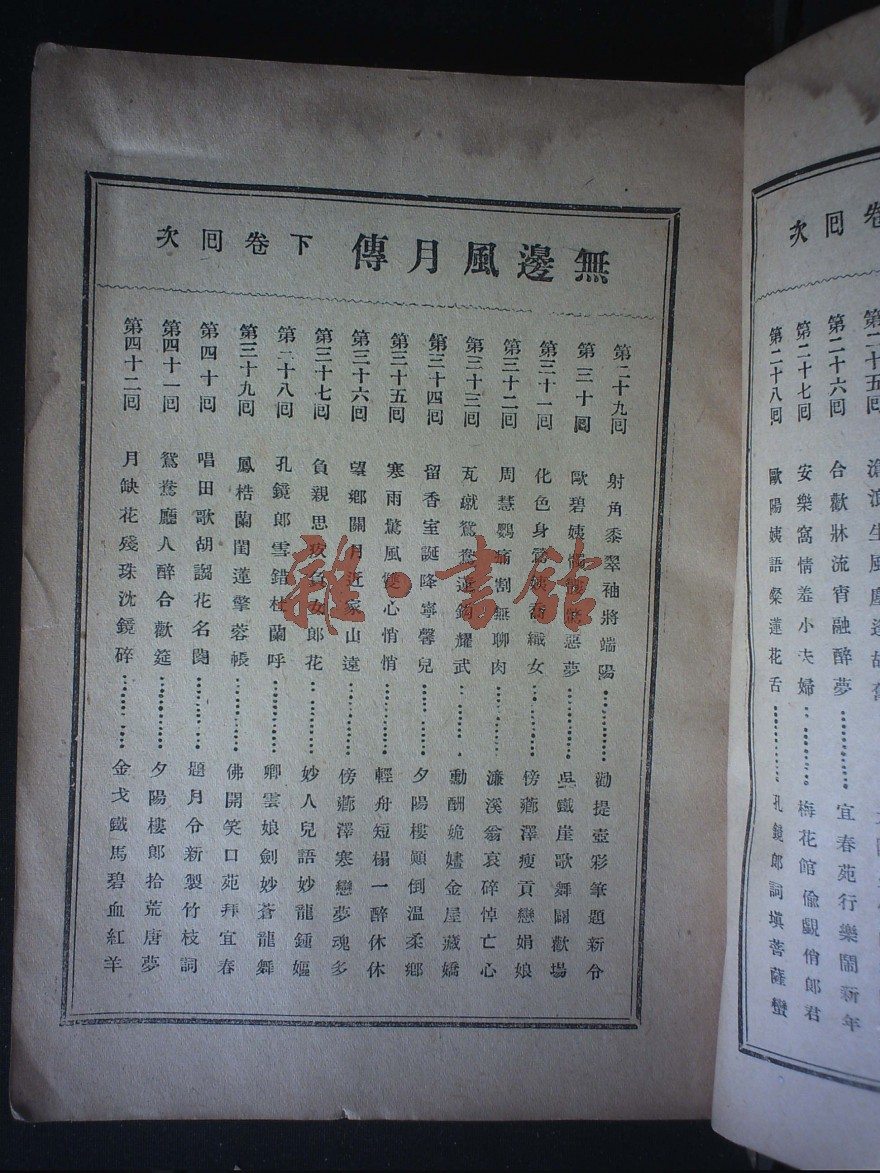 無邊風月傳 下卷回次
第二十九回 射角黍翠袖將端陽⋯⋯⋯⋯勸提壺彩筆題新令
第三十回 歐碧姨 惡夢⋯⋯⋯⋯吳鐵崖歌舞鬭歡場
第三十一回 化色身鶯姨喬織女⋯⋯⋯⋯傍薌澤瘦貢戀娟娘
第三十二回 周慧鸚痛割無聊肉⋯⋯⋯⋯濂溪翁哀碎悼亡心
第三十三回 瓦蹴鴛鴦逆鉤耀武⋯⋯⋯⋯勳酬媿嫿金屋藏嬌
第三十四回 留香室誕降寧馨兒⋯⋯⋯⋯夕陽樓顚倒溫柔鄉
第三十五回 寒雨驚風雙心悄悄⋯⋯⋯⋯輕舟短榻一醉休休
第三十六回 望鄉關月近家山遠⋯⋯⋯⋯傍薌澤寒戀夢魂多
第三十七回 負親思 負女郎花⋯⋯⋯⋯妙人兒語妙龍鍾嫗
第三十八回 孔鏡郎雪錯杜蘭呼⋯⋯⋯⋯卿雲娘劍妙蒼龍舞
第三十九回 鳳梏蘭閨蓮擎蓉帳⋯⋯⋯⋯佛開笑口苑拜宜春
第四十回 唱田歌胡謅花名 ⋯⋯⋯⋯題月令新製竹枝詞
第四十一回 鴛鴦廳人醉合歡筵⋯⋯⋯⋯夕陽樓郎拾荒唐夢
第四十二回 月缺花殘珠沈鏡碎⋯⋯⋯⋯金戈鐵馬碧血紅羊
卷回次
第二十五回
第二十六回 合歡牀流宵融醉夢⋯⋯⋯⋯宜春苑行樂鬧新年
第二十七回 安樂窩情羞小夫婦⋯⋯⋯⋯梅花館偸覷俏郎君
第二十八回 歐陽姨語粲蓮花舌⋯⋯⋯⋯孔鏡郎詞塡菩薩蠻
雜·書館